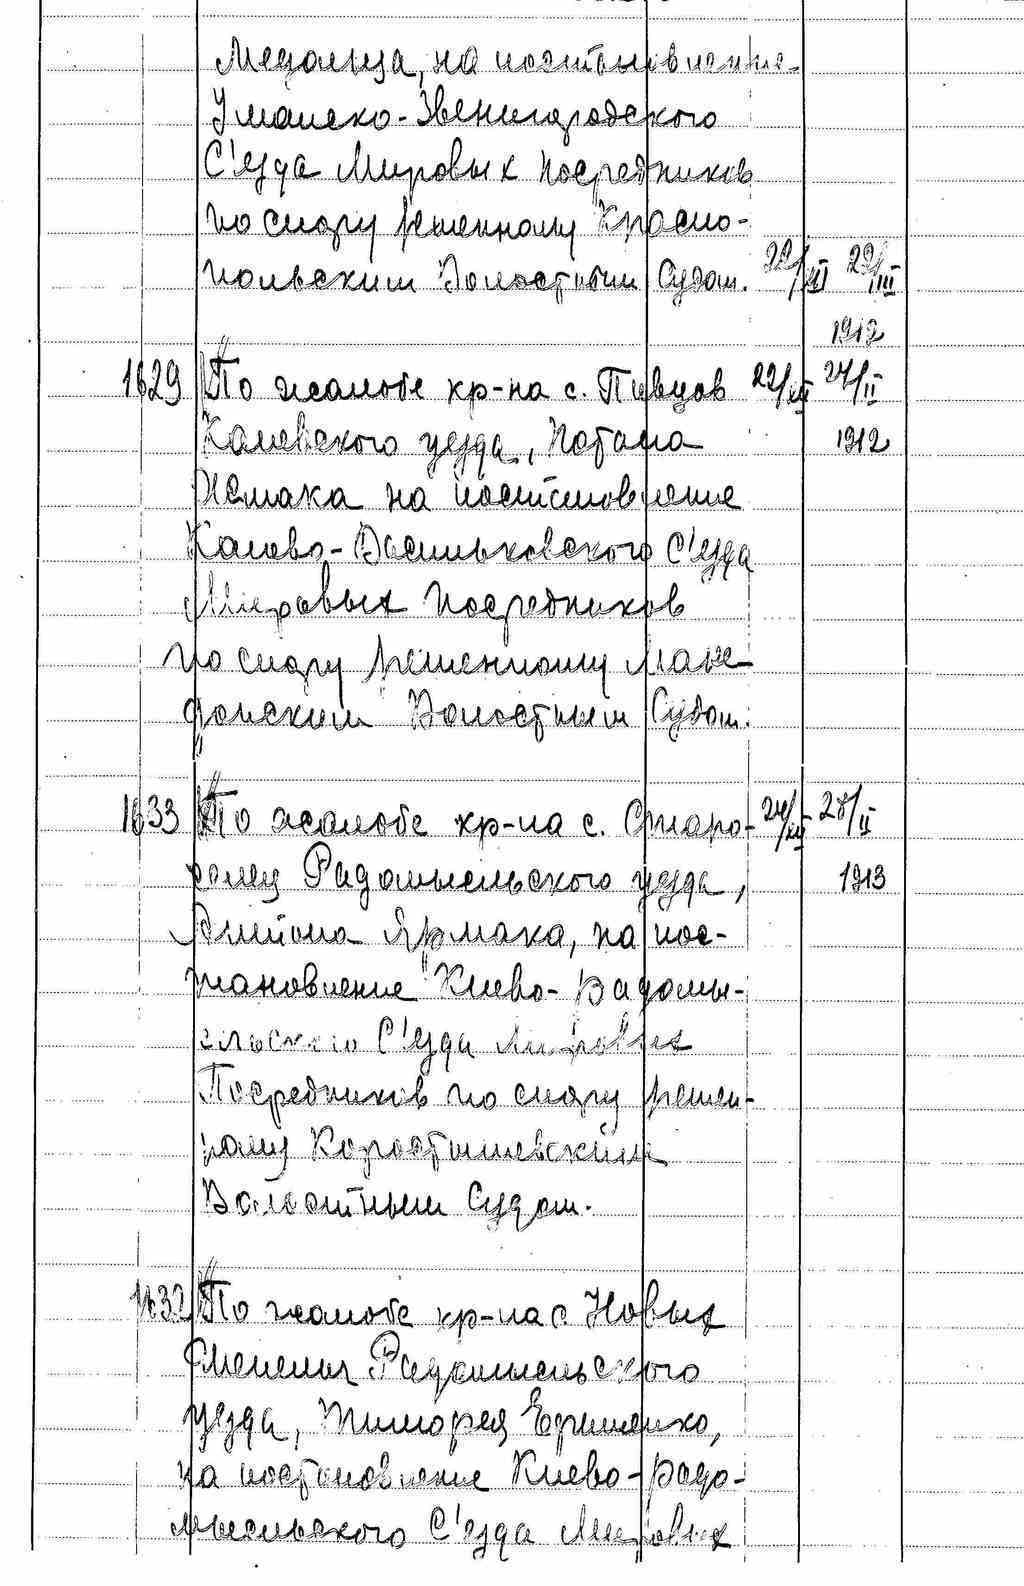 Медальца, на постановление
Уманско-Звенигородского
С'езда Мировых Посредников
по спору решенному Красно-
польским Волостным Судом. 22/XII 29/III
1912
1629 По жалобе кр-на с. Пивцов 22/XII 24/II
Каневского уезда, Потапа 1912
на постановление
Канево-Васильковского С'езда
Мировых Посредников
по спору решенному Маке-
донским Волостным Судом.
1633 По жалобе кр-на с. Старо-
24/XII 28/II
Радомысльского уезда, 1913
Ярмака, на пос-
тановление Киево-Радомы-
сльского С'езда Мировых
Посредников по спору решен-
ному Коростышевским
Волостным Судом.
1632 По жалобе кр-на с Новых
Радомысльского
уезда, Тимофея Ефименко,
на постановление Киево-радо-
мысльского С'езда Мировых